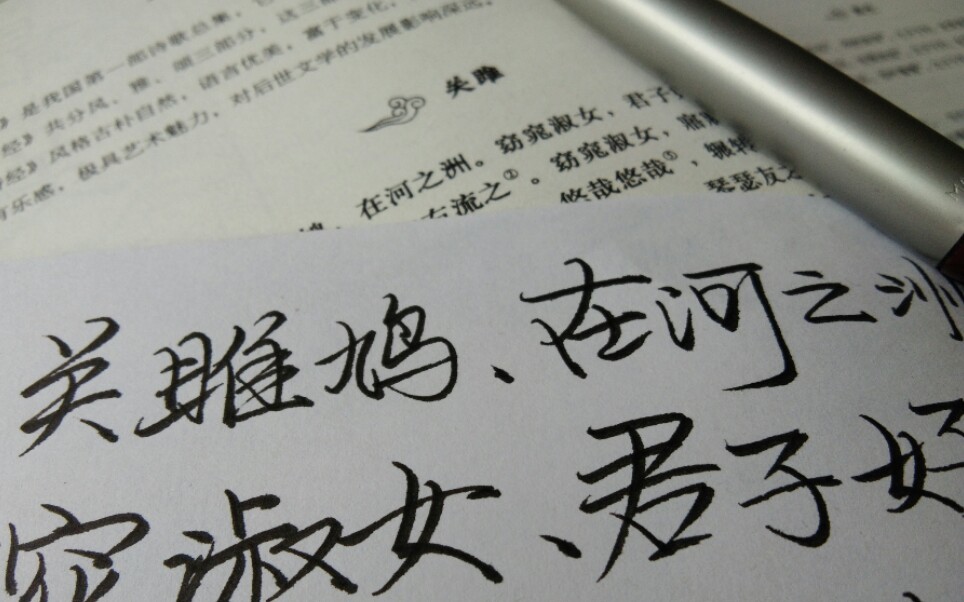 》是我国第一部诗歌总集，它
经》共分风、雅、颂三部分，这三部
经》风格古朴自然，语言优美，富于变化，
音乐感，极具艺术魅力，对后世文学的发展影响深远。
关雎
在河之洲。窈窕淑女，君子
右流之②。窈窕淑女，寤寐
悠哉悠哉③，辗转
琴瑟友之
关雎鸠、在河之洲
窕淑女、君子好